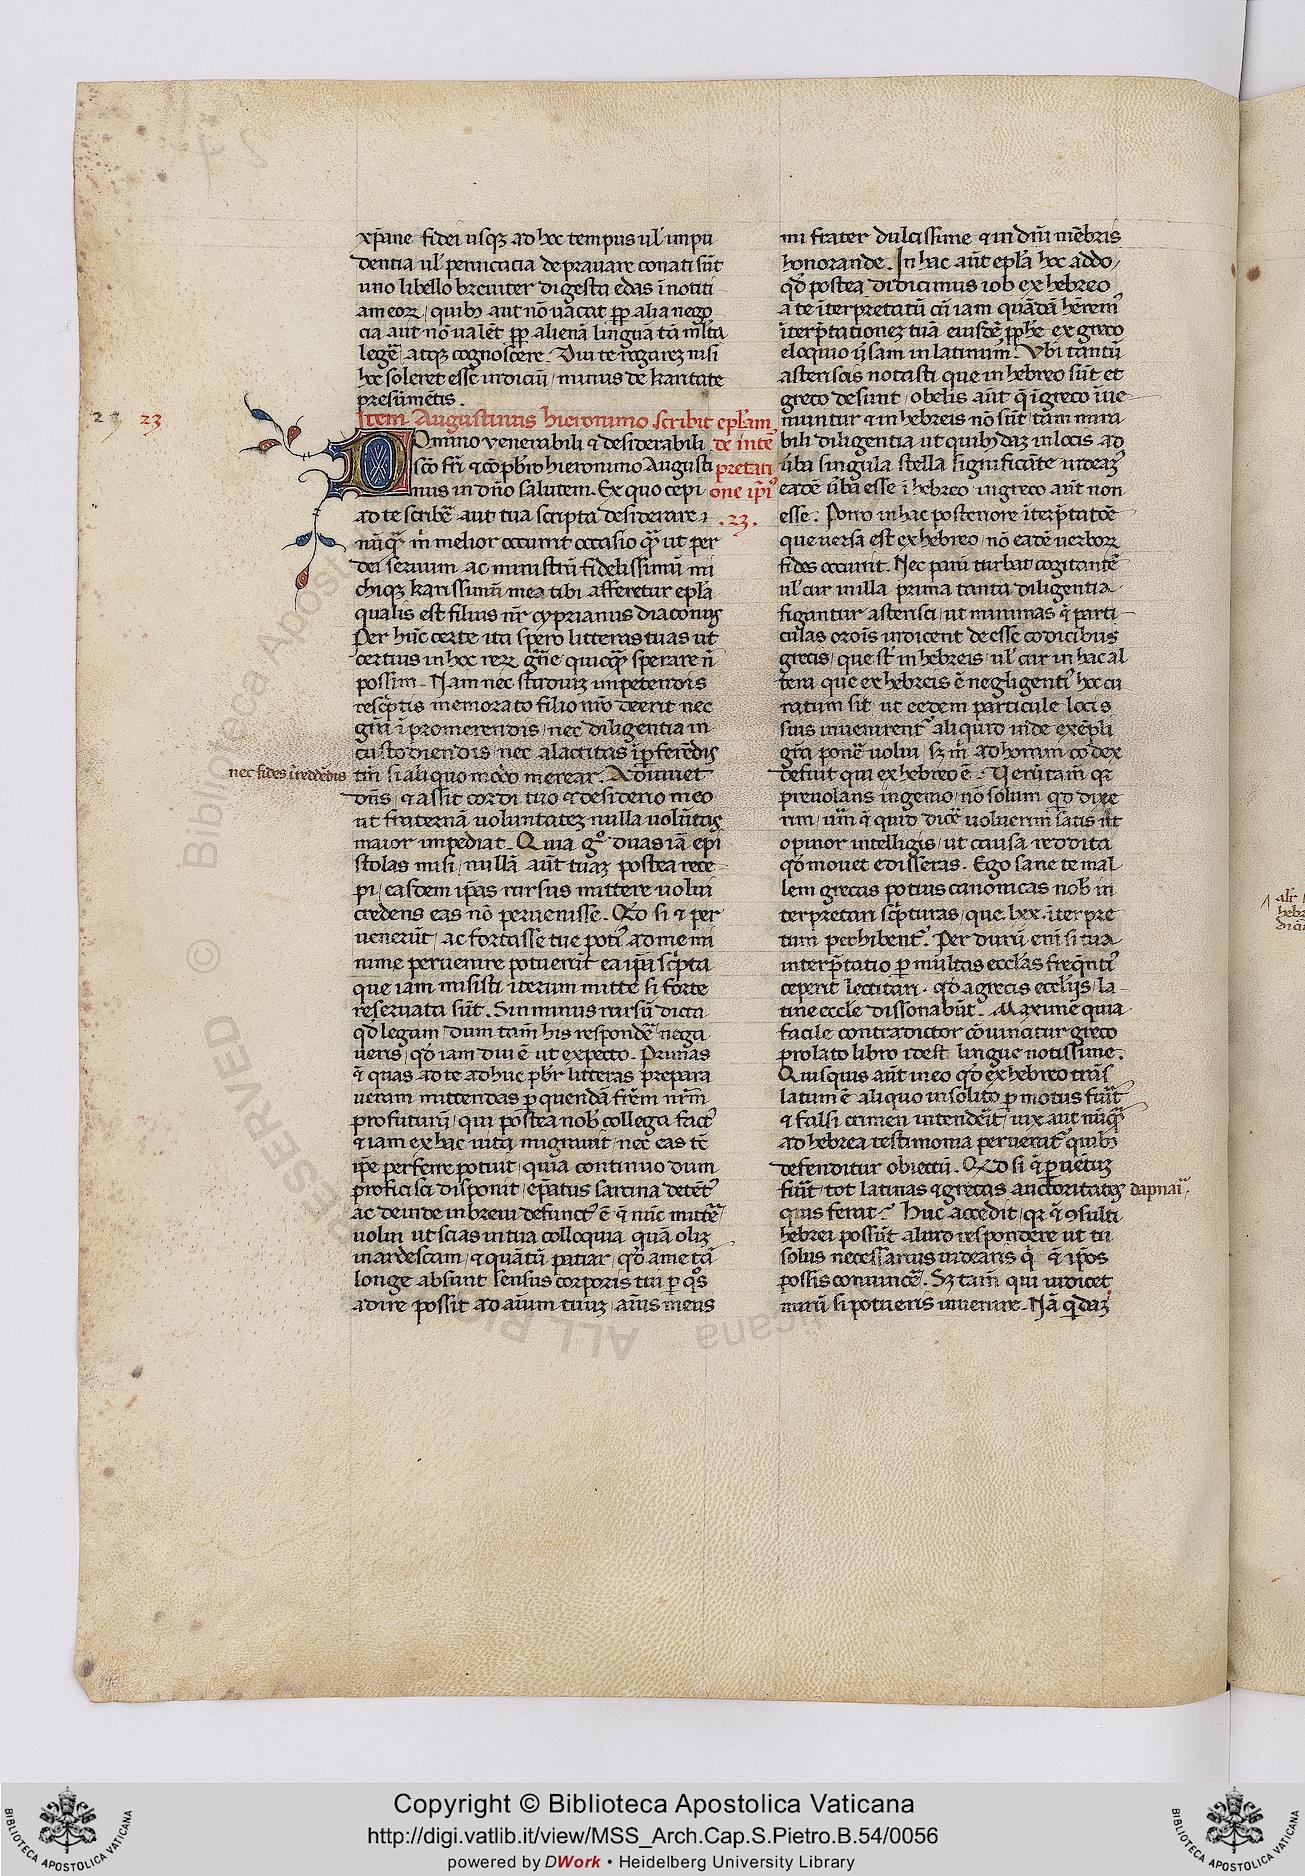 xp̄iane fidei usqꝫ ad hoc tempus ul' impu
dentia ul' peruicacia deprauare conati sūt
uno libello breuiter digesta edas ī notiti
am eoꝝ / quibꝫ aut nō uacat ꝓp̄ alia nego
cia aut nō ualēt ꝓp̄ alienā linguā tā ml'ta
lege᷑ atqꝫ cognoscere. Diu te rogareꝫ nisi
hoc soleret esse iudiciū / minus de karitate
presumētis.
Item Augustinus hieronimo scribit epl'am
de inte᷑
pretati
one ip̄i᷒
.23.
29 23
Domino venerabili ⁊ desiderabili
sc̄o fr̄i ⁊ cōpb̄ro hieronimo Augusti
nus in dn̄o salutem. Ex quo cepi
ad te scribe᷑ aut tua scripta desiderare /
nūq̄ᷓ m̄ melior occurrit occasio qᷓ̄ ut per
dei seruum ac ministrū fidelissimū mi
chiqꝫ karissimū mea tibi afferetur epl'a
qualis est filius nr̄ cyprianus diaconus
Per hūc certe ita spero litteras tuas ut
certius in hoc reꝝ gn̄e quicqᷓ̄ sperare n̄
possim. Nam nec studiuꝫ in petendis
rescptis memorato filio nr̄o deerit nec
grā ī promerendis / nec diligentia in
custodiendis / nec alacritas ī pferēdis
nec fides ī reddēdis
tm̄ si aliquo mō merear. Adiuuet
dn̄s / ⁊ assit cordi tuo ⁊ desiderio meo
ut fraternā uoluntateꝫ nulla uolūtas
maior impediat. Quia gͦ duas iā epi
stolas misi / nullā aūt tuaꝫ postea rece
pi / easdem ip̄as rursus mittere uolui
credens eas nō peruenisse. Qd̄ si ⁊ per
uenerūt / ac fortasse tue poti᷒ ad me mi
nime peruenire potuerūt ea ip̄a scpta
que iam misisti iterum mitte si forte
reseruata sūt. Sin minus rursū dicta
qd̄ legam / dum tam̄ his responde᷑ nega
ueris / qd̄ iam diu ē ut expecto. Primas
⁊ quas ad te adhuc pb̄r litteras prepara
ueram mittendas ꝑ quendā fr̄em nr̄m
profuturū / qui postea nob̄ collega fact᷒
⁊ iam ex hac uita migrauit / nec eas tē
ip̄e perferre potuit / quia continuo dum
proficisci disponit / ep̄atus sarcina detēt᷒
ac deinde in breui defunct᷒ ē ⁊ nūc mitte᷑
uolui ut scias in tua colloquia quā oliꝫ
inardescam / ⁊ quātū patiar / qd̄ a me tā
longe absunt sensus corporis tui ꝑ qͦs
adire possit ad aīum tuuꝫ / aīus meus
mi frater dulcissime ⁊ in dn̄i mēbris
honorande. In hac aūt epl'a hoc addo /
qd̄ postea didicimus iob ex hebreo
a te īterpretatū cū iam quādā hērem᷒
īterp̄tationeꝫ tuā eiusdē ꝓphe ex greco
eloquio ūsam in latinum. Vbi tantū
asteriscis notasti que in hebreo sūt et
greco desunt / obelis aūt q̄ ī greco īue
niuntur ⁊ in hebreis nō sūt / tam mira
bili diligentia ut quibꝰdaꝫ in locis ad
ūba singula stella significāte uideaꝫ᷒
eadē ūba esse ī hebreo / in greco aūt non
esse. Porro in hac posteriore īterp̄tatōe
que versa est ex hebreo / nō eadē verboꝝ
fides occurrit. Nec parū turbat cogitantē
ul' cur in illa prima tanta diligentia
figantur asterisci / ut minimas ⁊ parti
culas orōis indicent deesse codicibus
grecis / que st̄ in hebreis / ul' cur in hac al
tera que ex hebreis ē negligenti᷒ hoc cu
ratum sit / ut eedem particule locis
suis inuenirent᷑ aliquid inde exēpli
grā pone᷑ uolui / sꝫ m̄ ad horam codex
defuit qui ex hebreo ē. Verūtam̄ qꝛ
preuolans ingenio / nō solum qd̄ dixe
rim / uerū ⁊ quid dice᷑ uoluerim satis ut
opinor intelligis / ut causa reddita
qd̄ mouet edisseras. Ego sane te mal
lem grecas potius canonicas nob̄ in
terpretari scpturas / que .lxx. īterpre
tum perhibent᷑. Per durū eni᷒ si tua
interp̄tatio ꝑ multas eccl'as freqn̄ti᷒
ceperit lectitari. qd̄ a grecis eccl'ijs / la
tine eccl'e dissonabūt. Maxime quia
facile contradictor cōuincitur greco
prolato libro idest lingue notissime.
Quisquis aūt in eo qd̄ ex hebreo trās
latum ē aliquo insolito ꝑmotus fuīt
⁊ falsi crimen intenderit / uix aut nūqᷓ̄
ad hebrea testimonia peruenit᷑ quibꝫ
defenditur obiectū. Qd̄ si ⁊ ꝑuētuꝫ
fuīt / tot latinas ⁊ grecas auctoritates
dapnari᷒
quis ferat. Huc accedit / qꝛ ⁊ ꝯsulti
hebrei possūt aliud respondere ut tu
solus necessarius uidearis q̄ ⁊ ip̄os
possis conuince᷑. Sꝫ tam̄ quo iudice
mirū si potueris inuenire. Nā qdaꝫ
Copyright © Biblioteca Apostolica Vaticana
http://digi.vatlib.it/view/MSS_Arch.Cap.S.Pietro.B.54/0056
powered by DWork • Heidelberg University Library